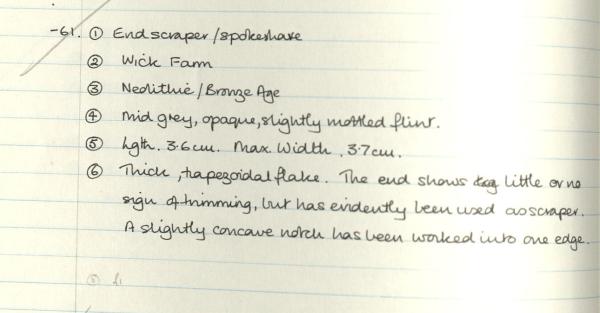 -61. ① End scraper/spokeshave
② Wick Farm
③ Neolithic/Bronze Age
④ Mid grey, opaque, slightly mottled flint.
⑤ Lgth. 3.6cm. Max. Width. 3.7cm.
⑥ Thick, trapezoidal flake. The end shows little or no
sign of trimming, but has evidently been used as scraper.
A slightly concave notch has been worked into one edge.